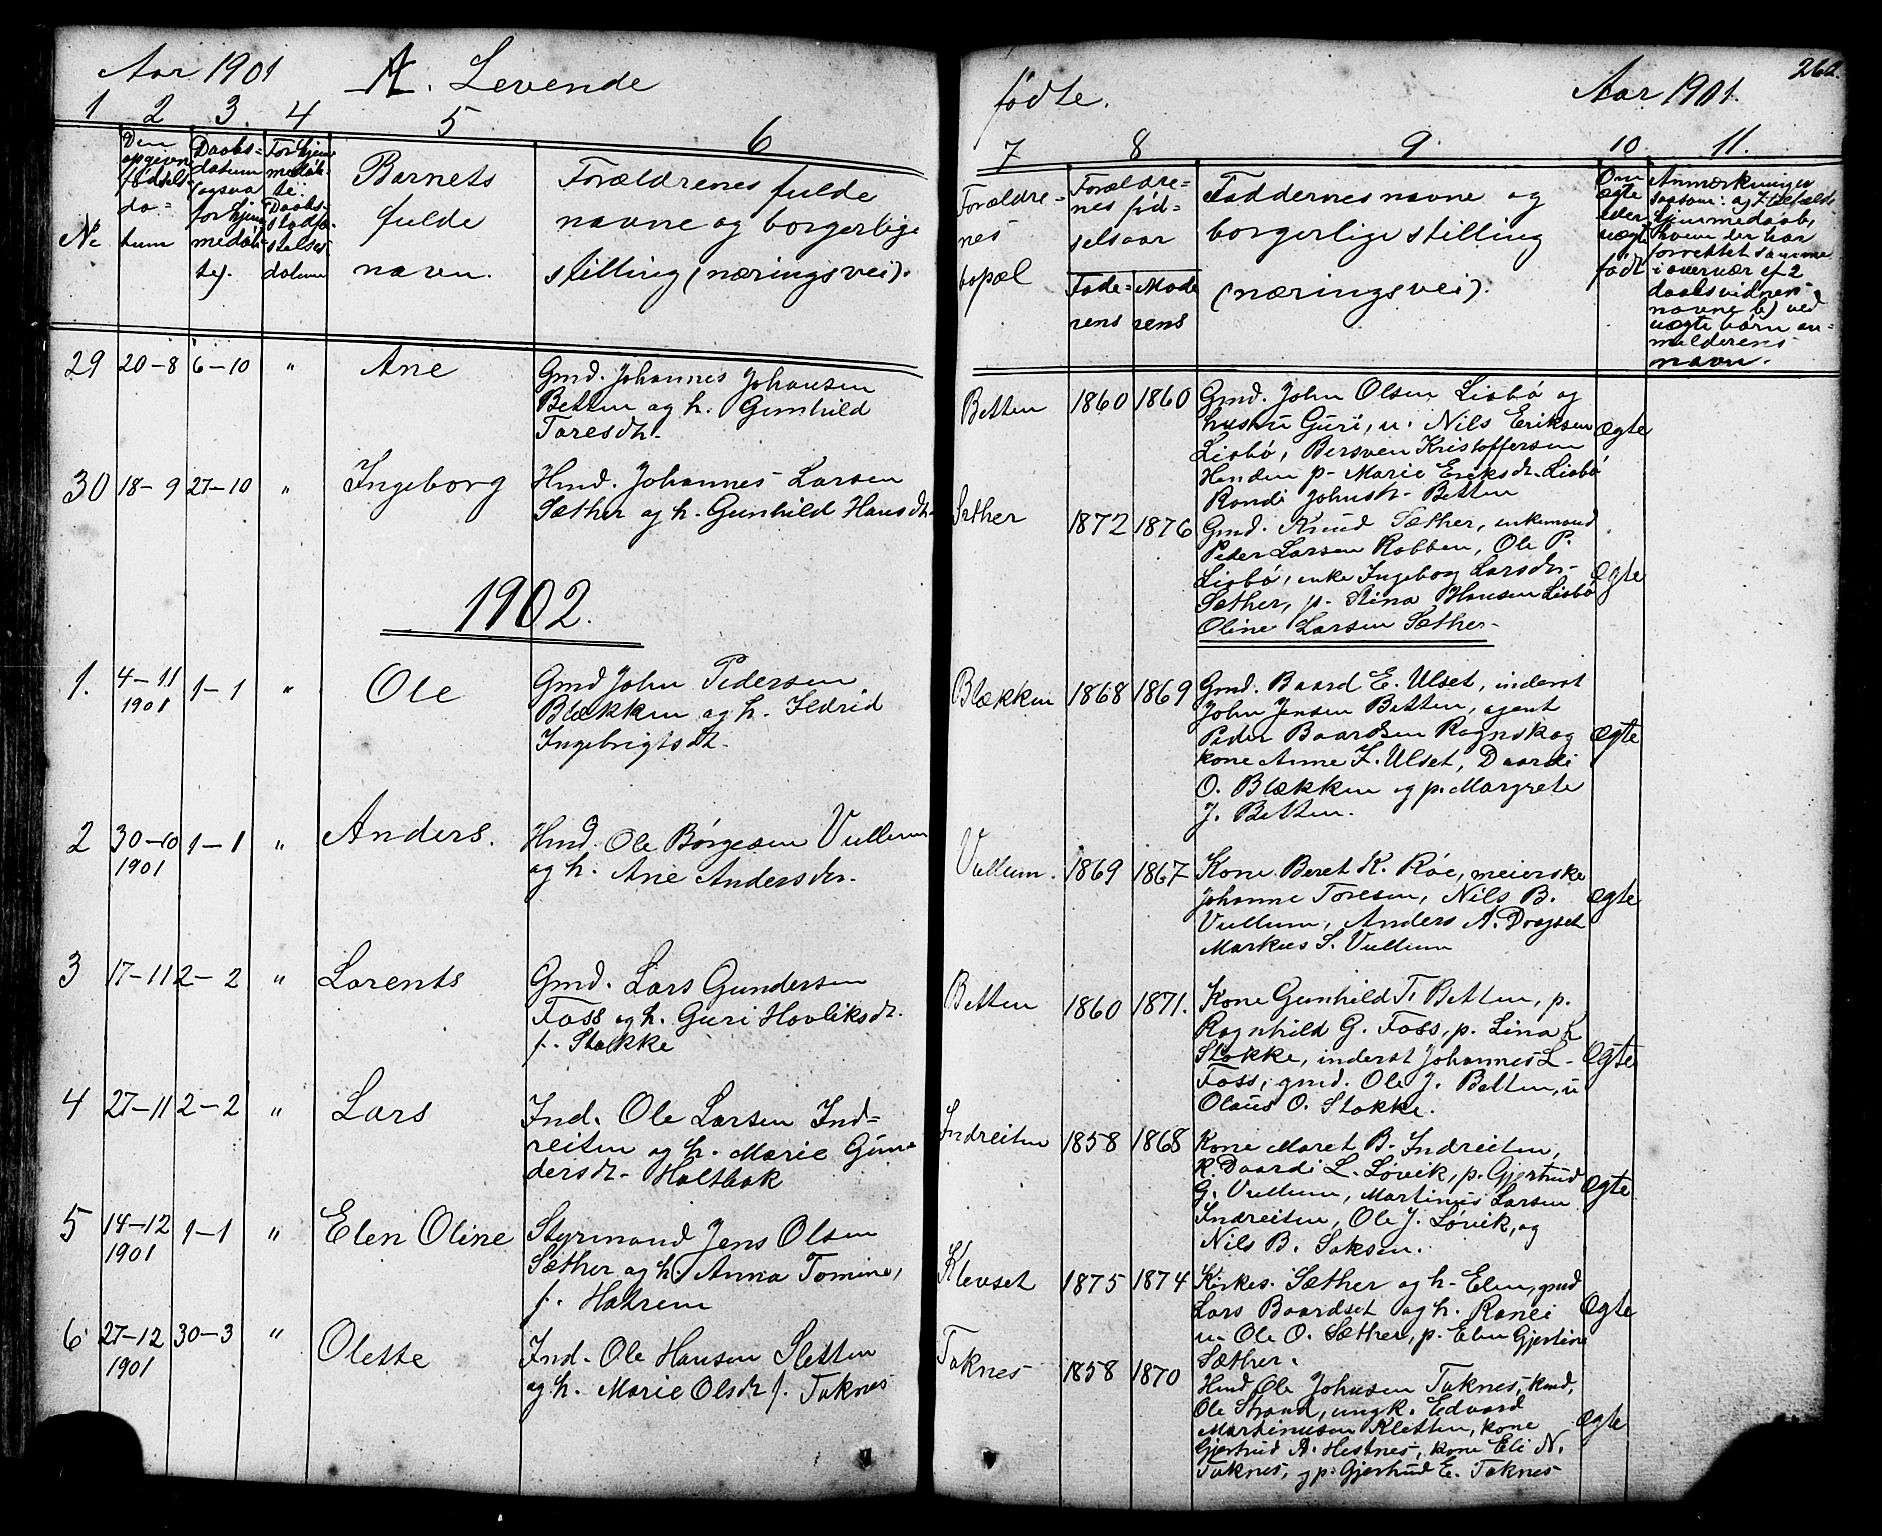 Aar 1901
A. Levende
1 2 3. 4 5 6
No
Den
opgivne
fødsels-
da-
tum
Daabs-
datum
(ogsaa
for hjem
medøb-
te).
For hjem
medøb-
te:
Daabs-
stadfæ-
stelses
datum
Barnets
fulde
navn.
Forældrenes fulde
navne og borgerlige
stilling (næringsvei).
29 20-8 6-10 " Ane
Gmd. Johannes Johansen
Betten og h. Gunhild
Toresdtr.
30 18-9 27-10 " Ingeborg
Hmd. Johannes Larsen
Sæther og h. Gunhild Hansdtr.
1902.
1. 4-11 1901 1-1 " Ole
Gmd John Pedersen
Blækken og h. Ildrid
Ingebrigtsdt.
2 30-10 1901 1-1 " Anders.
Hmd. Ole Børgesen Vullum
og h. Ane Andersdtr.
3 17-11 2-2 " Lorents
Gmd. Lars Gundersen
Foss og h. Guri Hovliksdt.
f. Stokke
4 27-11 2-2 " Lars
Ind. Ole Larsen Ind-
reiten og h. Marie Gun-
dersdt. Holtbak
5 14-12 1901 1-1 " Elen Oline
Styrmand Jens Olsen
Sæther og h. Anna Tomine,
f. Hatrem
6 27-12 1901 30-3 " Olette
Ind. Ole Hansen Sletten
og h. Marie Olsdt f. Taknes
fødte.
Aar 1901.
7 8 9. 10. 11.
Forældre-
nes
bopæl
Forældre-
nes fød-
selsaar
Fade-
rens
Mode
rens
Faddernes navne og
borgerlige stilling
(næringsvei).
Om
ægte
eller
uægte
født
Anmærkninger
saasom: a) I tilfælde
hjemmedaab,
hvem der har
forrettet samme
i overvær af 2
daabsvidner-
navne b) ved
uægte børn an-
melderens
navn.
Betten 1860 1860
Gmd. John Olsen Lisbø og
hustru Guri, u. Nils Eriksen
Lisbø, Bersven Kristoffersen
Henden p. Marie Eriksdt. Lisbø
Randi Johnsdt. Betten
Ægte
Sæther 1872 1876
Gmd. Knud Sæther, enkemand
Peder Larsen Robben, Ole P.
Lisbø, enke Ingeborg Larsdtr.
Sæther, p. Stina Hansen Lisbø
Oline Larsen Sæther.
Ægte
Blækken 1868 1869
Gmd. Baard E. Ulset, inderst
John Jensen Betten, agent
Peder Baardsen Rognskog
kone Anne I. Ulset, Daardi
O. Blækken og p. Margrete
J. Betten.
Ægte
Vullum. 1869 1867
Kone Beret K. Røe, meierske
Johanne Toresen, Nils B.
Vullum, Anders A. Dragset
Markus S. Vullum
Ægte
Betten 1860 1871.
Kone Gunhild T. Betten, p.
Ragnhild G. Foss, p. Lina L
Stokke, inderst Johannes L.
Foss, gmd. Ole J. Betten, u
Olaus O. Stokke.
Ægte
Indreiten 1858 1868
Kone Maret B. Indreiten,
k. Daardi L. Løvik, p. Gjertrud
G. Vullum, Martinus Larsen
Indreiten, Ole J. Løvik, og
Nils B. Saksen.
Ægte
Klevset 1875 1874
Kirkes. Sæther og h. Elen, gmd
Lars Baardset og h. Ranei
u. Ole O. Sæther, p. Elen Gjertine
Sæther.
Ægte
Taknes 1858 1870
Hmd Ole Johnsen Taknes, kmd,
Ole Strand, ungk. Edvard
Martinusen Kletten, kone
Gjertrud A. Hestnes, kone Eli N.
Taknes, og p. Gjertrud E. Taknes
Ægte